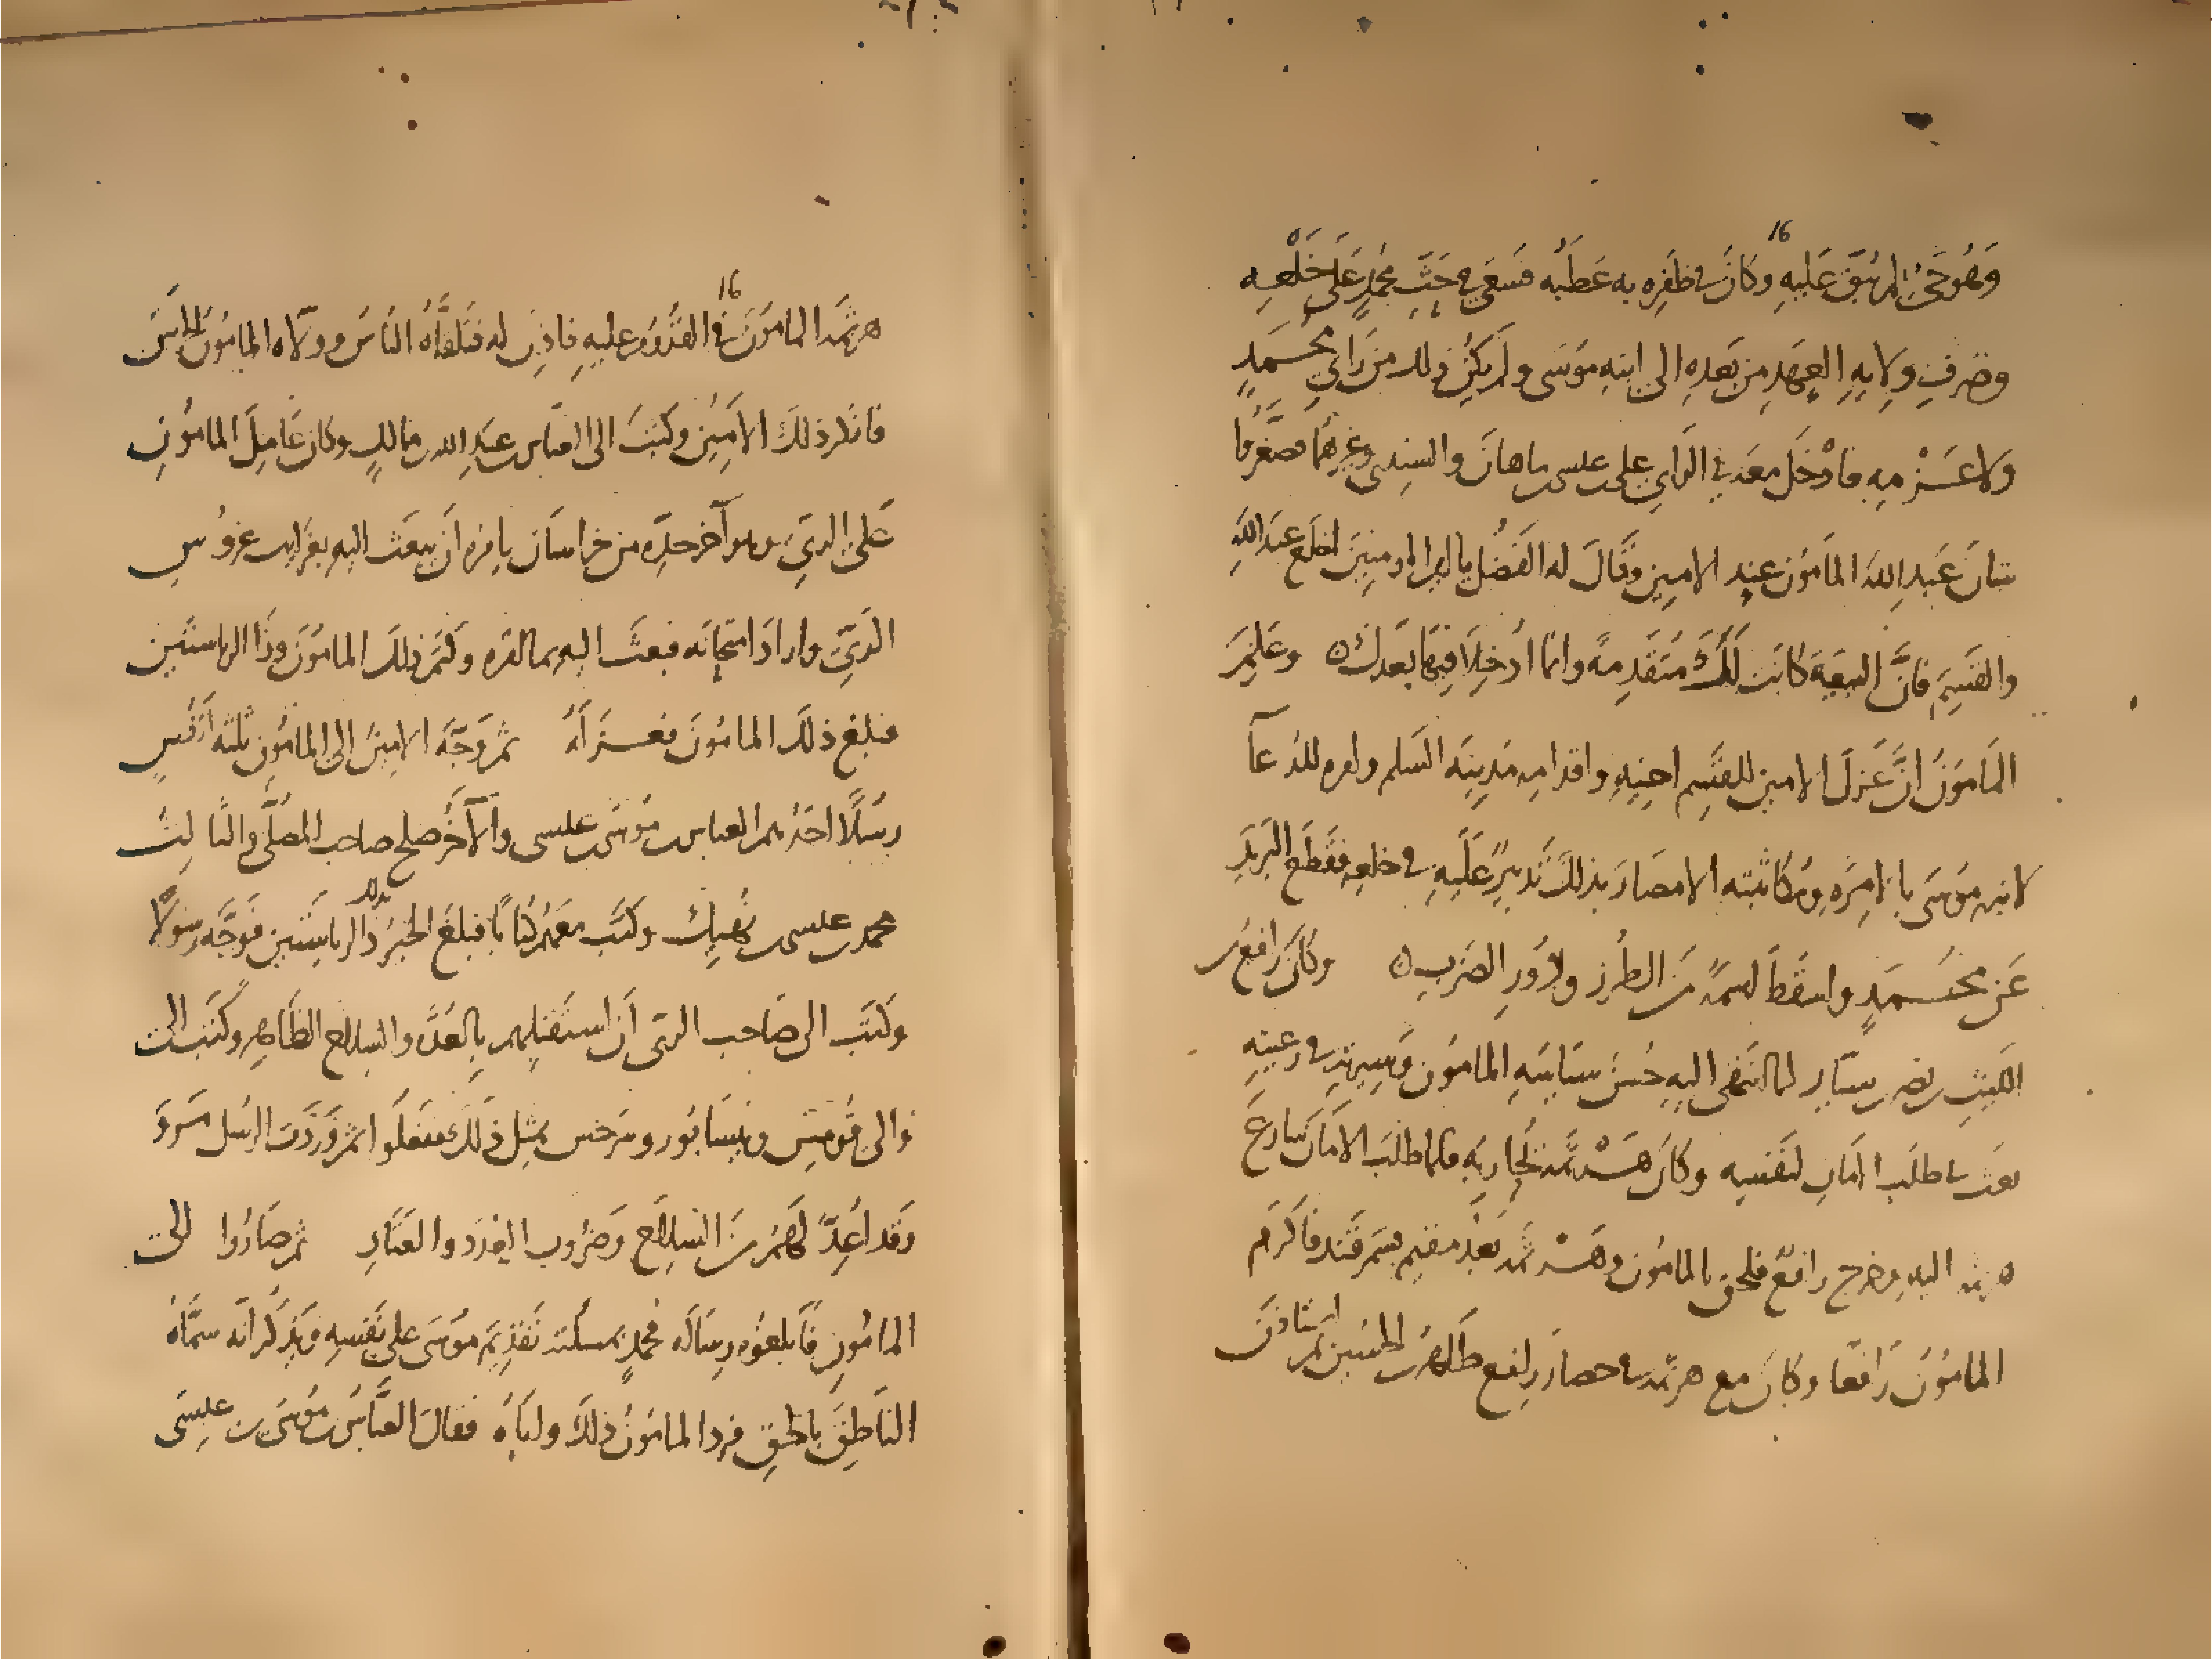 16
وَهُوَ حَيٌّ لم يُبْقِ عَلَيهِ وكانَ في ظفَرِه به عَطَبُه فسَعَى في حَثِّ محمدٍ عَلَى خَلْعِه
وصَرفِ ولايةِ العهدِ من بَعدِه الى ابنهِ موسَى ولم يكن ذلك من رَايِ محمدٍ
ولا عَزمِه فادْخَلَ معَه في الرايِ علي بن عيسى بن ماهانَ والسندي وغيرهما فصَغَّروا
شانَ عَبدِ اللهِ المامون عند الامين وقالَ له الفَضْل يا امير المومنين اخلع عبدَ اللهِ
والقسم فانَّ البيعَةَ كانَت لكَ مُتقَدِّمةً وانما ادخِلا فيها بَعدك ٥ وعَلمَ
المَامونُ انَّ عَزلَ الامين للقسم اخيهِ واقدامه مَدينَة السّلم وامره للدُعآ
لابنه موسَى بالامرَه ومُكاتبته الامصارَ بذلك تَدبيرٌ عَلَيهِ في خلعِه فقَطع البَريدَ
عَن محمدٍ واسقَطَ اسمَهُ منَ الطُرز ودُورِ الضَربِ ٥ وكانَ رافعُ بن
الليثِ بن نصر بن سيّار لما انتَهى اليهِ حُسنُ سيَاسَةِ المامُون وسِيرته في رعيتهِ
بعَث في طلَبِ الامَانِ لنَفسِه وكانَ هَرْثَمَة يُحَاربُه فلما طلَبَ الامَانَ سَارعَ
هرثمه اليهِ وخرج رافعٌ فلحق بالمامُون وهَرْثَمه بَعدُ مقيم بسَمَرقَند فاكرَم
المامُونُ رَافعًا وكانَ مع هرثمه في حصار رافع طَاهرُ بن الحُسين ثم استاذنَ
16
هرثَمه المامونَ في القُدُومِ عليهِ فاذِن له فتَلقَّاهُ الناسُ وولّاه المامُونُ الحرَسَ
فانكر ذلكَ الامين وكتَبَ الى العباس بن عبدِ الله بن مالكٍ وكان عَامِلَ المامُونِ
عَلى الريّ وهو آخر حدّه من خراسَان يامرُه أن يبعَث اليهِ بغرايب غروُسِ
الريّ واراد امتحانَه فبعثَ اليهِ بما امَره وكتَم ذلك المامُونَ وذَا الرياستَين
فبلغ ذلك المامُونَ فعَزلَهُ ثم وَجّهَ الامينُ الى المامُونِ ثلثة اَنفُسٍ
رسُلًا احَدُهم العباس بن مُوسَى بن عيسى والآخَر صلح صاحب المصلّى والثالثُ
محمد بن عيسى بن نَهيك وكتَبَ معَهُم كتابًا فبلَغَ الخَبرُ بذلك ذا الرياستَين فوَجَّه رسُولًا
وكتَب الى صَاحب الريّ أن استقبلهم بالعُدّة والسلاح الظَاهر وكتَب الى
والي قُومِس ونيسَابُور وسَرخس بمثِل ذلك ففعلُوا ثم وَرَدَت الرسُل مَروَ
وقَد اُعِدّ لهُم منَ السِلَاح وضرُوب العُدَد والعَتَادِ ثم صَارُوا الى
المامُونِ فاَبلغوه رسَالَة محمدٍ بمسئلته تَقديمَ موسَى على نفسِه وَيَذكُر انّه سمّاهُ
النَاطِقَ بالحَقِ فردّ المامُونُ ذلكَ واباهُ فقالَ العَبّاسُ بن مُوسَى بن عيسَى